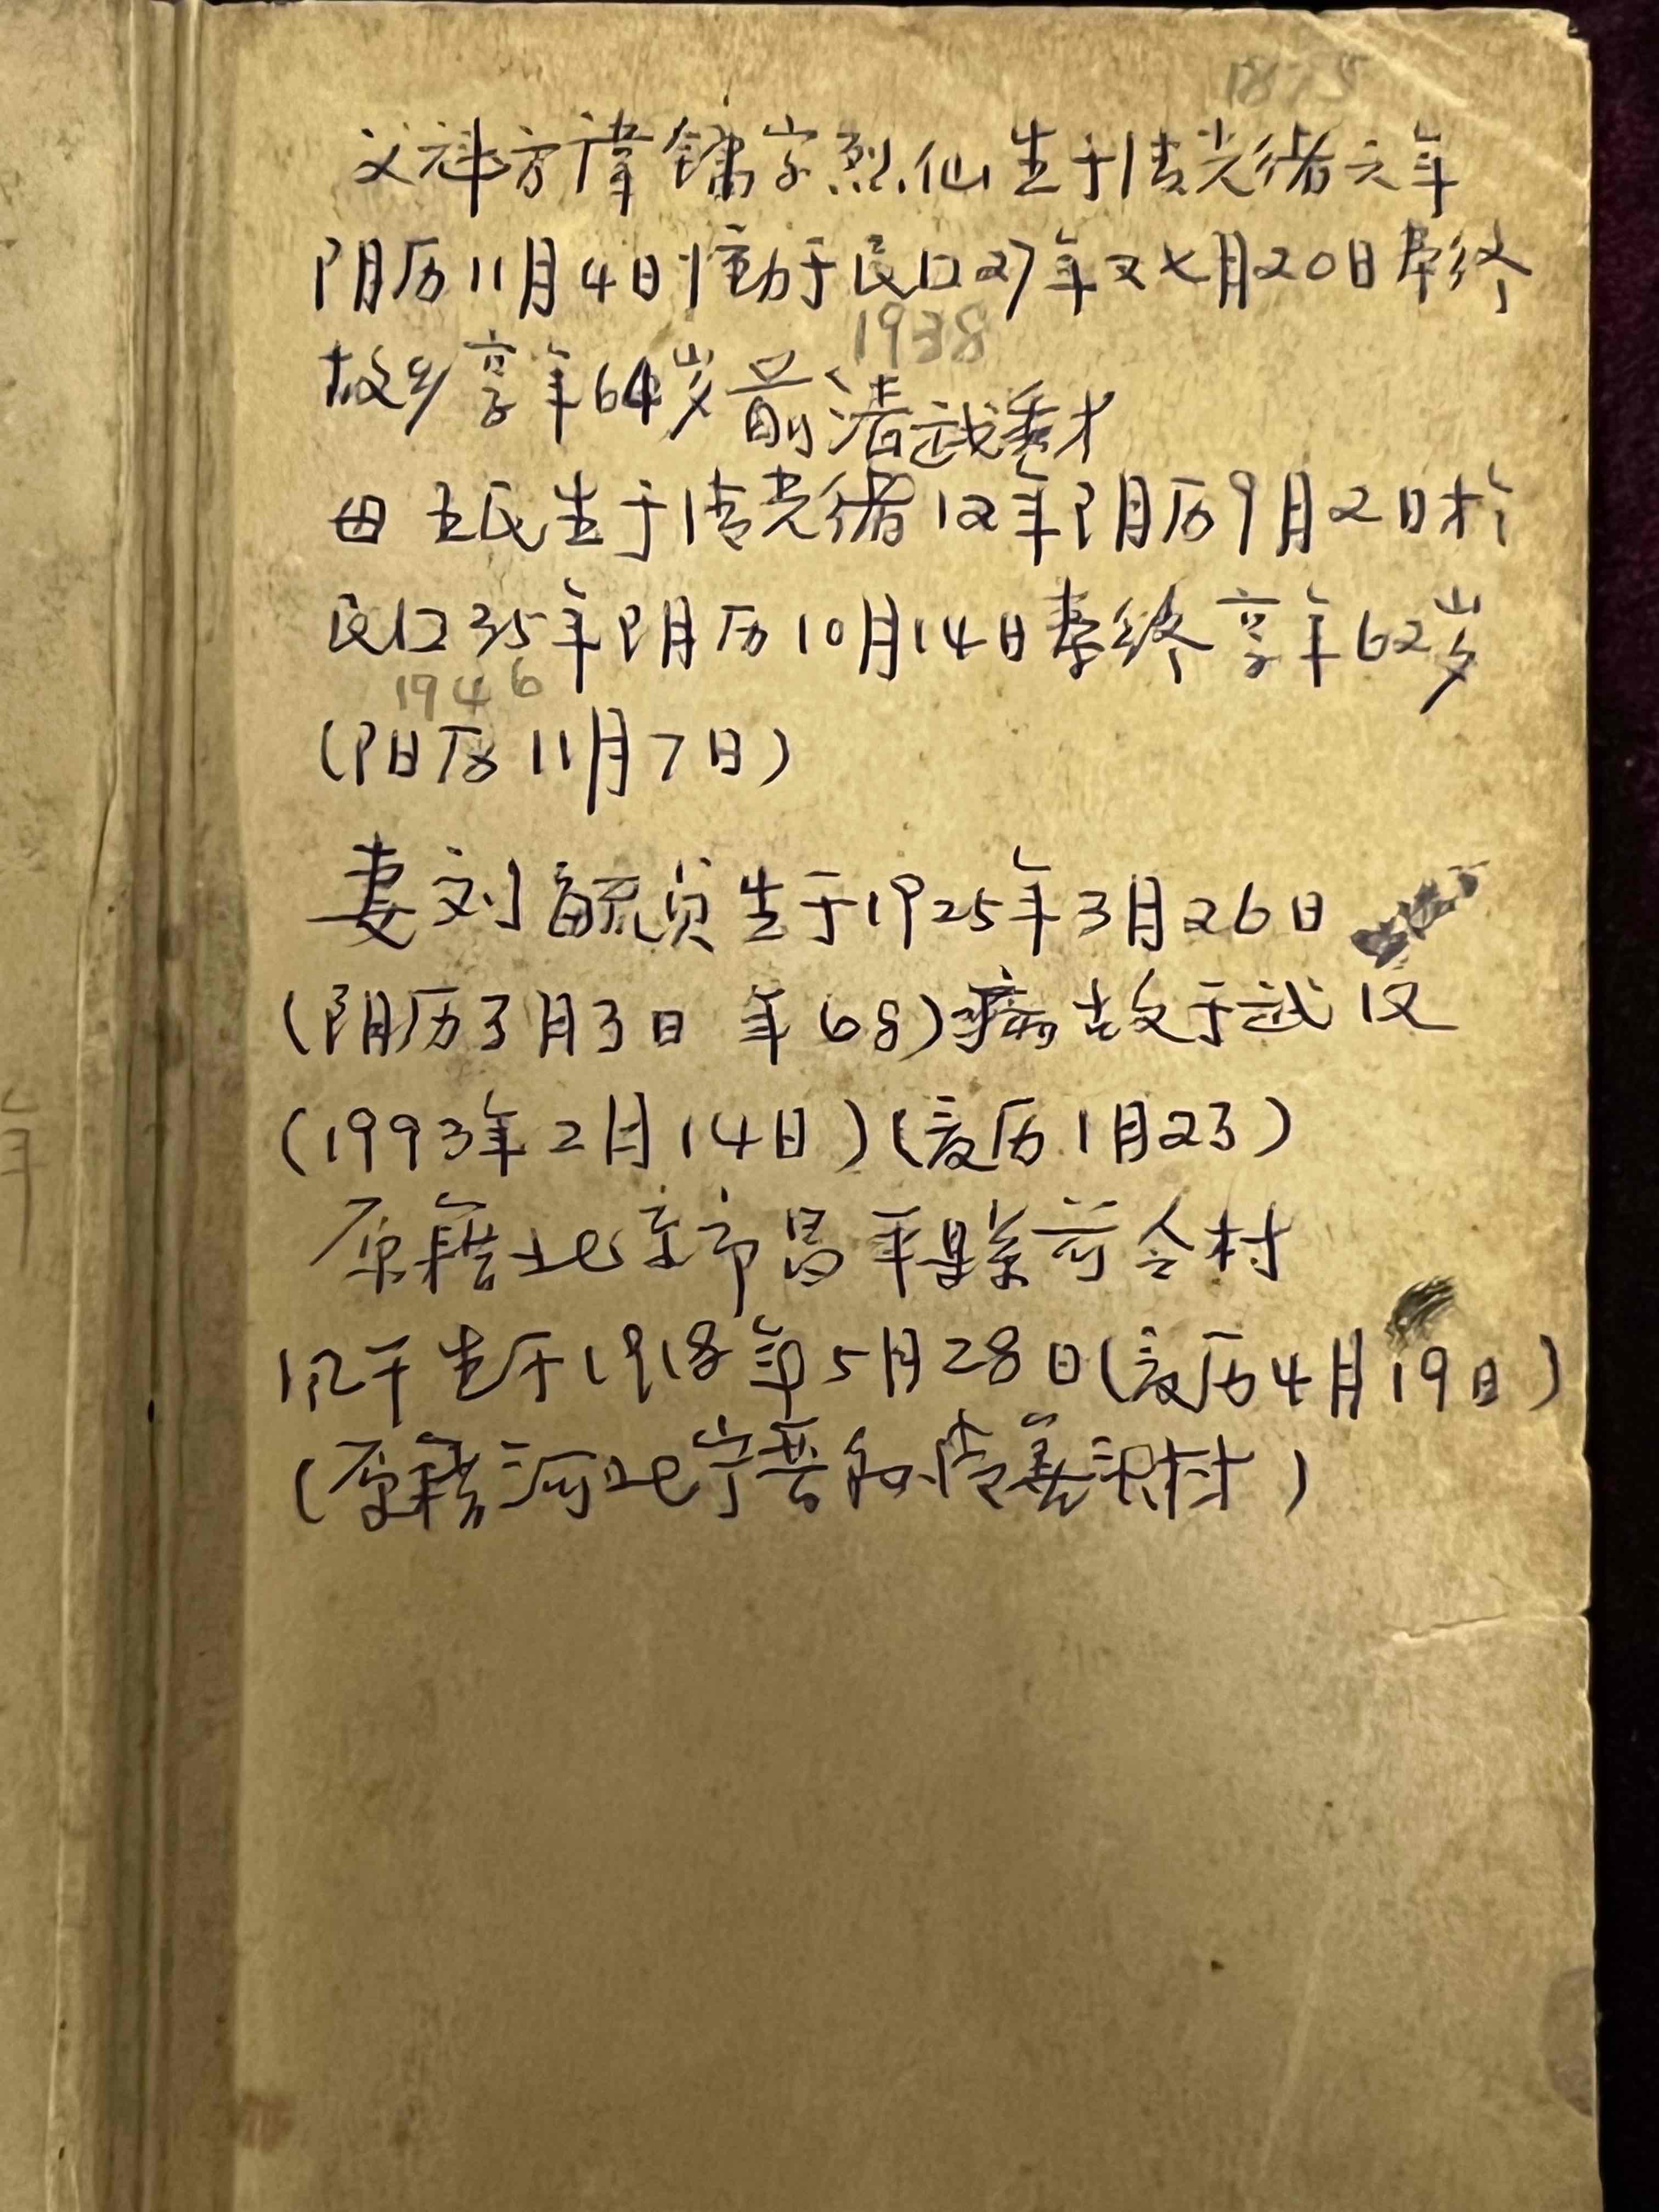 1875
父 方讳镛字烈仙生于清光绪元年
阴历11月4日恸于民国27年又七月20日寿终
1938
故乡享年64岁前清武秀才
母王氏生于清光绪12年阴历9月2日于
民国35年阴历10月14日寿终享年62岁
1946
(阳历11月7日)
妻刘毓贞生于1925年3月26日
(阴历3月3日 年68)病故于武汉
(1993年2月14日)(夏历1月23)
原籍北京市昌平县前 村
生于1918年5月28日(夏历4月19日)
(原籍河北宁晋 村)